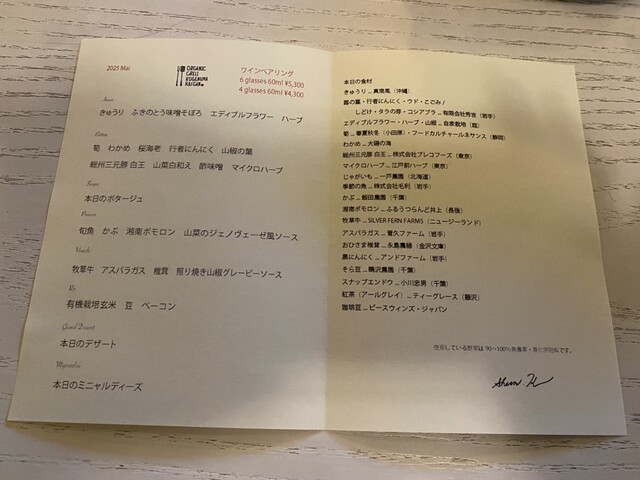 2025 Mai
ORGANIC
GRILL
KUGENUMA
KAIGAN
ワインペアリング
6 glasses 60ml ¥5,300
4 glasses 60ml ¥4,300
きゅうり ふきのとう味噌そぼろ エディブルフラワー ハーブ
筍 わかめ 桜海老 行者にんにく 山椒の葉
総州三元豚 白王 山菜白和え 酢味噌 マイクロハーブ
Soupe
本日のポタージュ
Poisson
旬魚 かぶ 湘南ポモロン 山菜のジェノヴェーゼ風ソース
Viande
牧草牛 アスパラガス 椎茸 照り焼き山椒グレービーソース
Riz
有機栽培玄米 豆 ベーコン
Grand Dessert
本日のデザート
本日のミニャルディーズ
本日の食材
きゅうり … 真南風（沖縄）
蕗の薹・行者にんにく・ウド・こごみ /
しどけ・タラの芽・コシアブラ … 有限会社秀吉（岩手）
エディブルフラワー・ハーブ・山椒 … 自家栽培（庭）
筍 … 春夏秋冬（小田原）・フードカルチャールネサンス（静岡）
わかめ … 大磯の海
総州三元豚 白王 … 株式会社プレコフーズ（東京）
マイクロハーブ … 江戸前ハーブ（東京）
じゃがいも … 一戸農園（北海道）
季節の魚 … 株式会社毛利（岩手）
かぶ … 飯田農園（千葉）
湘南ポモロン … ふるうつらんど井上（長後）
牧草牛 … SILVER FERN FARMS（ニュージーランド）
アスパラガス … 菅久ファーム（岩手）
おひさま椎茸 … 永島農縁（金沢文庫）
黒にんにく … アンドファーム（岩手）
そら豆 … 鵜沢農園（千葉）
スナップエンドウ … 小川忠男（千葉）
紅茶（アールグレイ）… ティーグレース（藤沢）
珈琲豆 … ピースウィンズ・ジャパン
使用している野菜は 90〜100%無農薬・有化学肥料です。